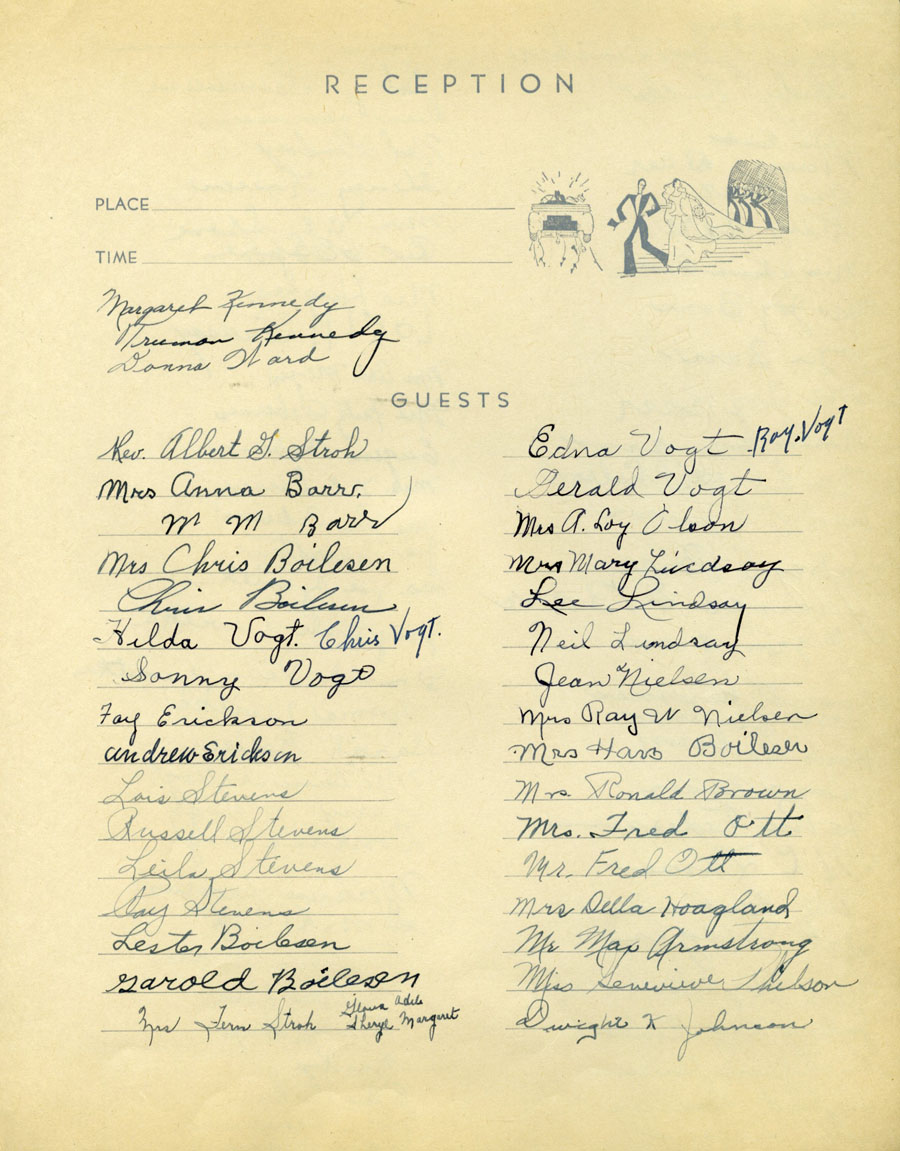 RECEPTION
PLACE
TIME
Margaret Kennedy
Truman Kennedy
Donna Ward
GUESTS
Rev. Albert G. Stroh
Mrs Anna Barr.
M M Barr
Mrs Chris Boilesen
Chris Boilesen
Hilda Vogt. Chris Vogt.
Sonny Vogt
Fay Erickson
Andrew Erickson
Lois Stevens
Russell Stevens
Leila Stevens
Ray Stevens
Lester Boilesen
Harold Boilesen
Mrs Fern Stroh
Adele
Sheryl Margaret
Edna Vogt Ray. Vogt
Gerald Vogt
Mrs A. Loy Olson
Mrs Mary Lindsay
Lee Lindsay
Neil Lindsay
Jean Nielsen
Mrs Ray W Nielsen
Mrs Hans Boilesen
Mrs. Ronald Brown
Mrs. Fred Ott
Mr. Fred Ott
Mrs Della Hoagland
Mr Max Armstrong
Miss Genevieve
Dwight K Johnson